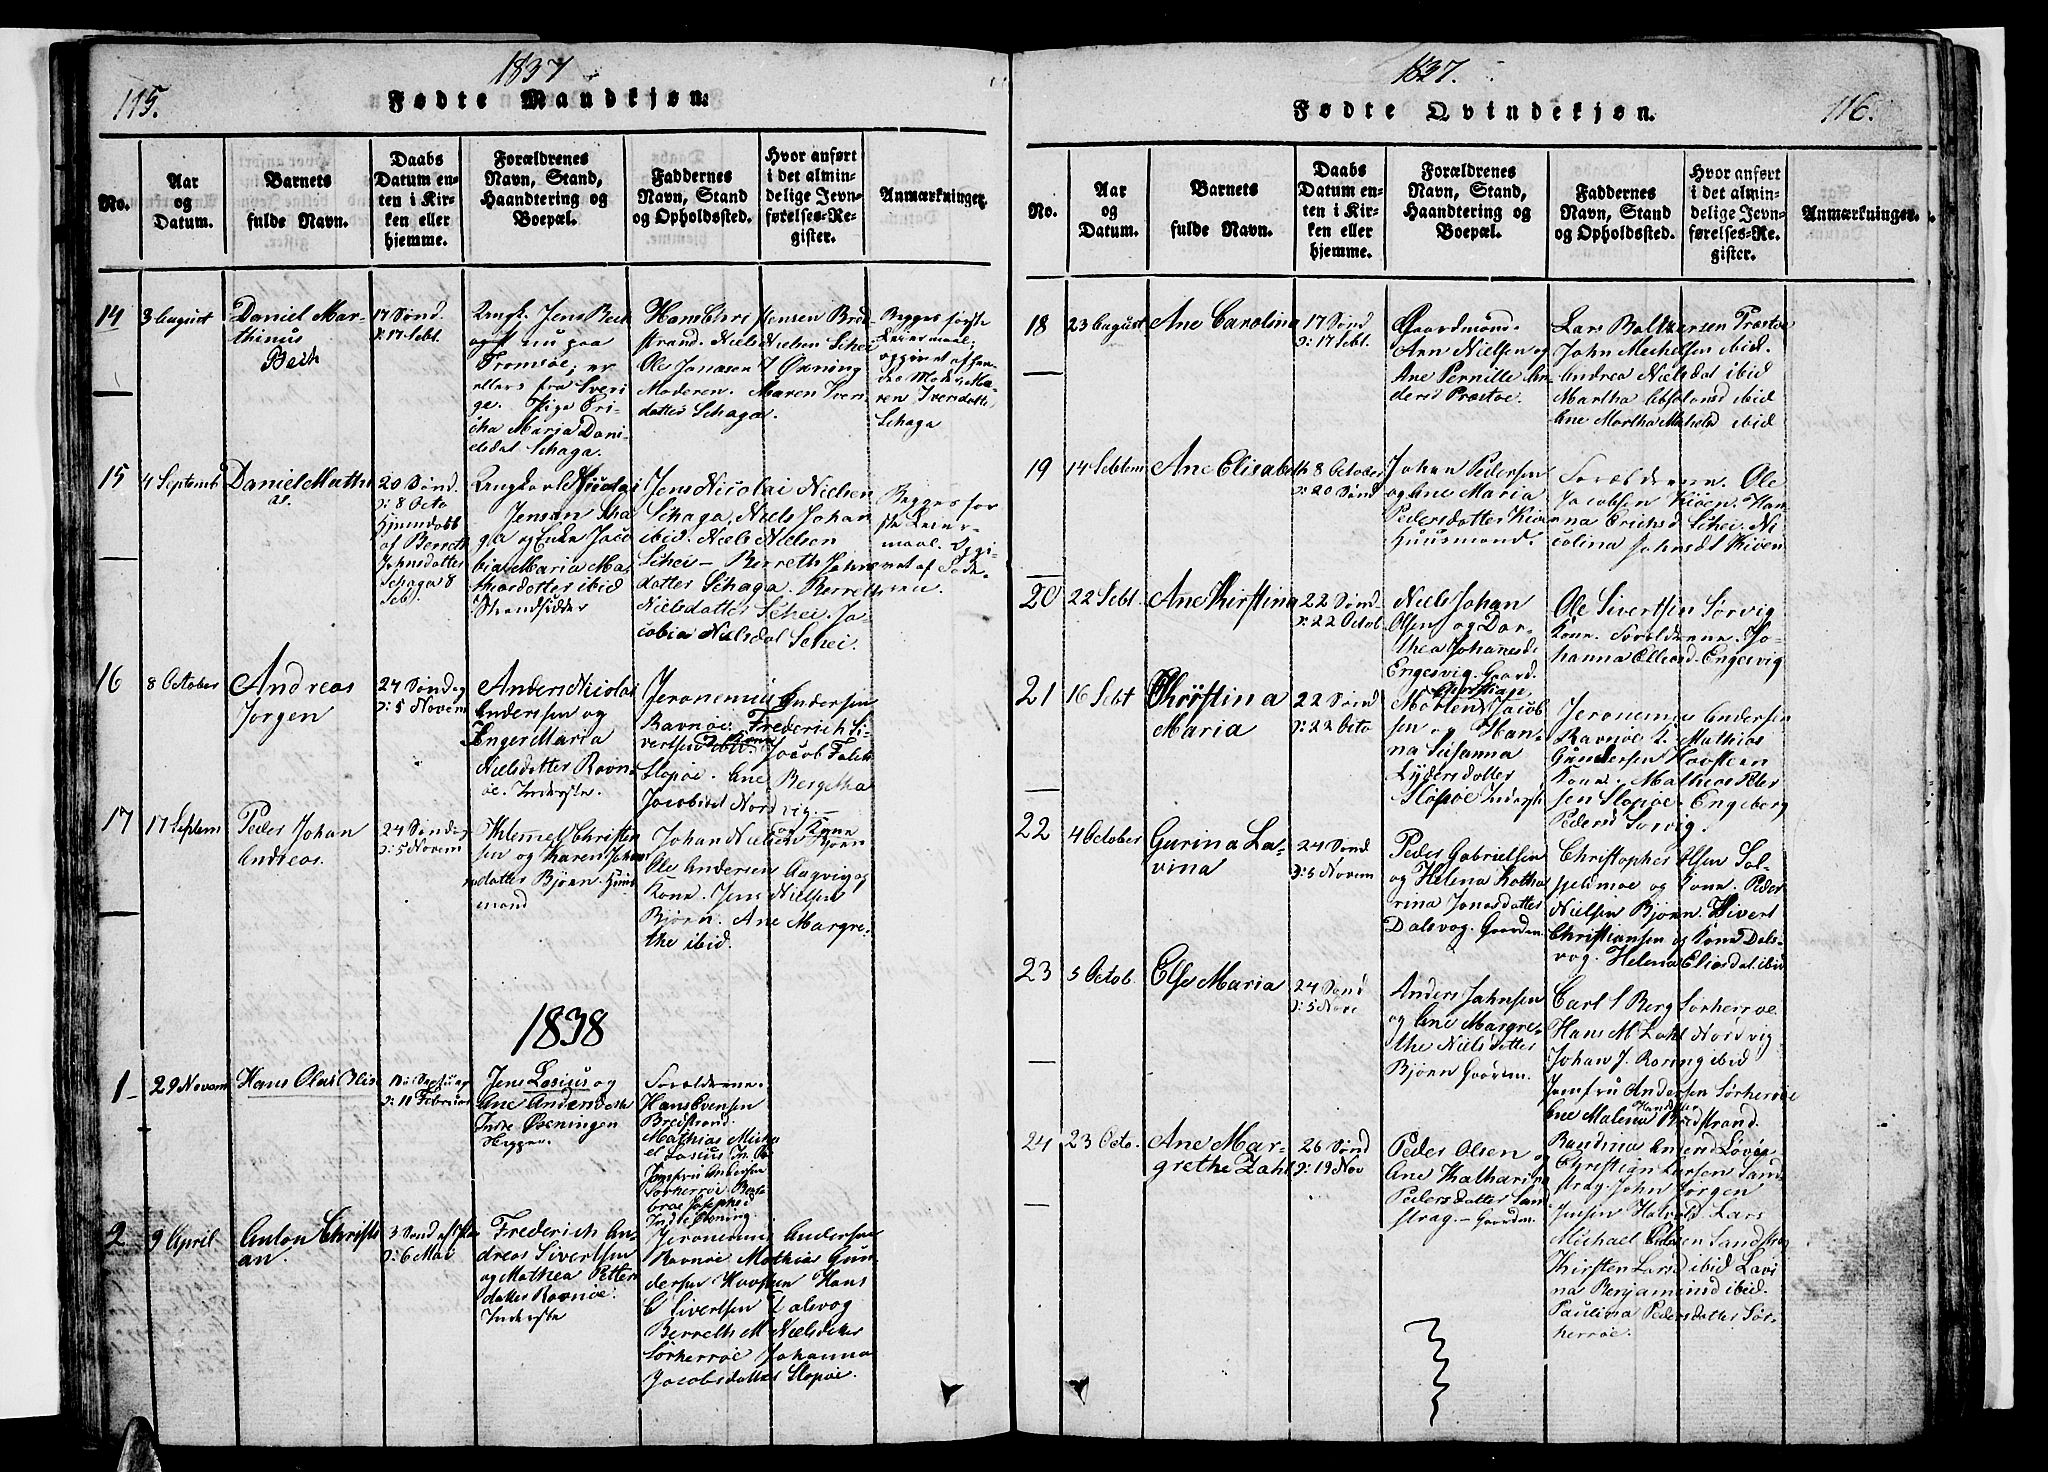 115.
1837
Fødte Mandkjøn.
No.
Aar
og
Datum.
Barnets
fulde Navn.
Daabs
Datum en-
ten i Kir-
ken eller
hjemme.
Forældrenes
Navn, Stand,
Haandtering og
Boepæl.
Faddernes
Navn, Stand
og Opholdssted.
Hvor anført
i det almin-
delige Jevn-
førelses-Re-
gister.
Anmærkninger.
14
3 August
Daniel Mar-
thinus
Bech
17 Sønd.
ɔ: 17 Sebt.
Ungk. Jens Bech
nu paa
Tromsøe, er
ellers fra Sveri
ge. Pige Eri-
cha Maria Dani-
elsdat Schaga.
Hans Christensen Bred-
strand. Niels Nielsen Schei
Ole Jonasen Øxning
Moderen. Maren Ivers
datter Schaga.
Begges første
Leiermaal,
opgivet af
Moder Ka-
ren Iversdatter
Schaga
15
4 Septemb
Daniel Math
20 Sønd.
ɔ: 8 Octo
Hjemdøbt
af Berreth
Johnsdatter
Schaga 8
Seb.
Ungkarl Nicolai
Jensen Scha
ga og Enke Jaco
bia Maria Ma-
thiasdatter ibid
Strandsidder
Jens Nicolai Nielsen
Schaga, Niels Johan
ibid. Niels Nielsen
Schei – Berreth Johns
datter Schaga. Berreth
Nielsdatter Schei. Ja-
cobia Nielsdat Schei.
Begges før
ste Leier-
maal. Opgi-
vet af Fade-
ren.
16
8 October
Andreas
Jørgen
24 Søndag
ɔ: 5 Novem
Anders Nicolai
Anderssen og
Inger Maria
Nielsdatter Ravn-
øe. Inderste.
Jeronemus Andersen
Ravnøe. Frederich Si-
vertsen ibid. Jacob Falch
Slopøe. Ane Bergetha
Jacobsdat Nordvig –
17
17 Septem
Peder Johan
Andreas.
24 Søndag
ɔ: 5 Novem
Klemmet Christen
sen og Karen Johan
datter Bjørn. Huus
mand
Johan Nielsen og Kone Bjørn
Ole Andersen Aagvig og
Kone. Jens Nielsen
Bjørn. Ane Margre-
the ibid.
1838
1
29 Novem
Hans Olai
ɔ: 11 Februar
Jens Losius og
Ane Andersdatt
Indre Øxningen
Sorældrene.
Hans Evensen
Bredstrand.
Mathias Micha
el Losius
Jomfru Andersen
Sørherrøe
broe Josephsd
Indre Øxning.
2
9 April
Anton Christi
an.
3 Sønd eft Paas
ɔ: 6 Mai
Frederich An-
dreas Sivertsen
og Mathea Petter
datter Ravnøe.
Inderste
Jeronemus Andersen
Ravnøe Mathias Gun
dersen Hovsteen Hans
C Sivertsen Dalsvog
Berreth M Nielsdatter
Sørherrøe Johanna
Jacobsdatter Slopøe.
1837.
116.
Fødte Qvindekjøn.
No.
Aar
og
Datum.
Barnets
fulde Navn.
Daabs
Datum en-
ten i Kir-
ken eller
hjemme.
Forældrenes
Navn, Stand,
Haandtering og
Boepæl.
Faddernes
Navn, Stand
og Opholdssted.
Hvor anført
i det almin-
delige Jevn-
førelses-Re-
gister.
Anmærkninger.
18
23 August
Ane Carolina
17 Sønd
ɔ: 17 Sebt.
Gaardmand.
Arn Nielsen og
Ane Pernille An-
dersd Præstøe.
Lars Baltzersen Præstøe
John Mechelsen ibid.
Andrea Nielsdat ibid
Martha Absolonsd ibid
Ane Martha Michelsd ibid
19
14 Sebtem
Ane Elisabeth
8 October
ɔ: 20 Sønd
Johan Pedersen
og Ane Maria
Pedersdatter Kiøen
Huusmand.
Forældrene. Ole
Jacobsen Kiøen. Han-
na Erichsd Schei. Ni
colina Johnsdt Kiøen
20
22 Sebt.
Ane Kirstina
22 Sønd
ɔ: 22 Octob
Niels Johan
Olsen og Dor-
thea Johannesd.
Engesvig. Gaard.
Ole Sivertsen Sørvig
Kone. Forældrene. Jo-
hanna Ellensd. Engesvig
21
16 Sebt
Kirstina
Maria
22 Sønd
ɔ: 22 Octo
Morten Christian Jacob
sen og Han-
na Susanna
Lydersdatter
Slopøe Inderst
Jeronemus Andersen
Ravnøe. Mathias
Gundersen Hovsteen
Kone. Matheas Peter
sen Slopøe. Engeborg
Pedersd Sørvig.
22
4 October
Gurina La-
vina
24 Sønd
ɔ: 5 Novem
Peder Gabrielsen
og Helena Katha
rina Jonasdatter
Dalsvog. Gaardm.
Christopher Olsen Sol-
fjeldmoe og Kone. Peder
Nielsen Bjørn. Sivert
Christiansen og Kone Dals-
vog. Helena Eliasdat. ibid
23
5 Octob.
Else Maria
24 Sønd
ɔ: 5 Nove
Anders Johnsen
og Ane Margre-
the Nielsdatter
Bjørn Gaardm.
Carl S Berg Sørherrøe
Hans M Zahl Nordvig
Johan J. Roring ibid
Jomfru Andersen Sørherrøe
Ane Malena Hansdtr Bredstrand.
24
23 Octo.
Ane Mar-
grethe Zahl
26 Sønd
ɔ: 19 Nov
Peder Olsen og
Ane Katharina
Pedersdatter Sand
strag – Gaardm.
Randina Andersd Løvøe
Christian Larsen Sand
strag. John Jørgen
Jensen Lars
Michael Pedersen Sandstrag
Kirsten Larsd ibid Lavi
na Benjaminsd ibid.
Paulina Pedersdatter Sør-
herrøe.